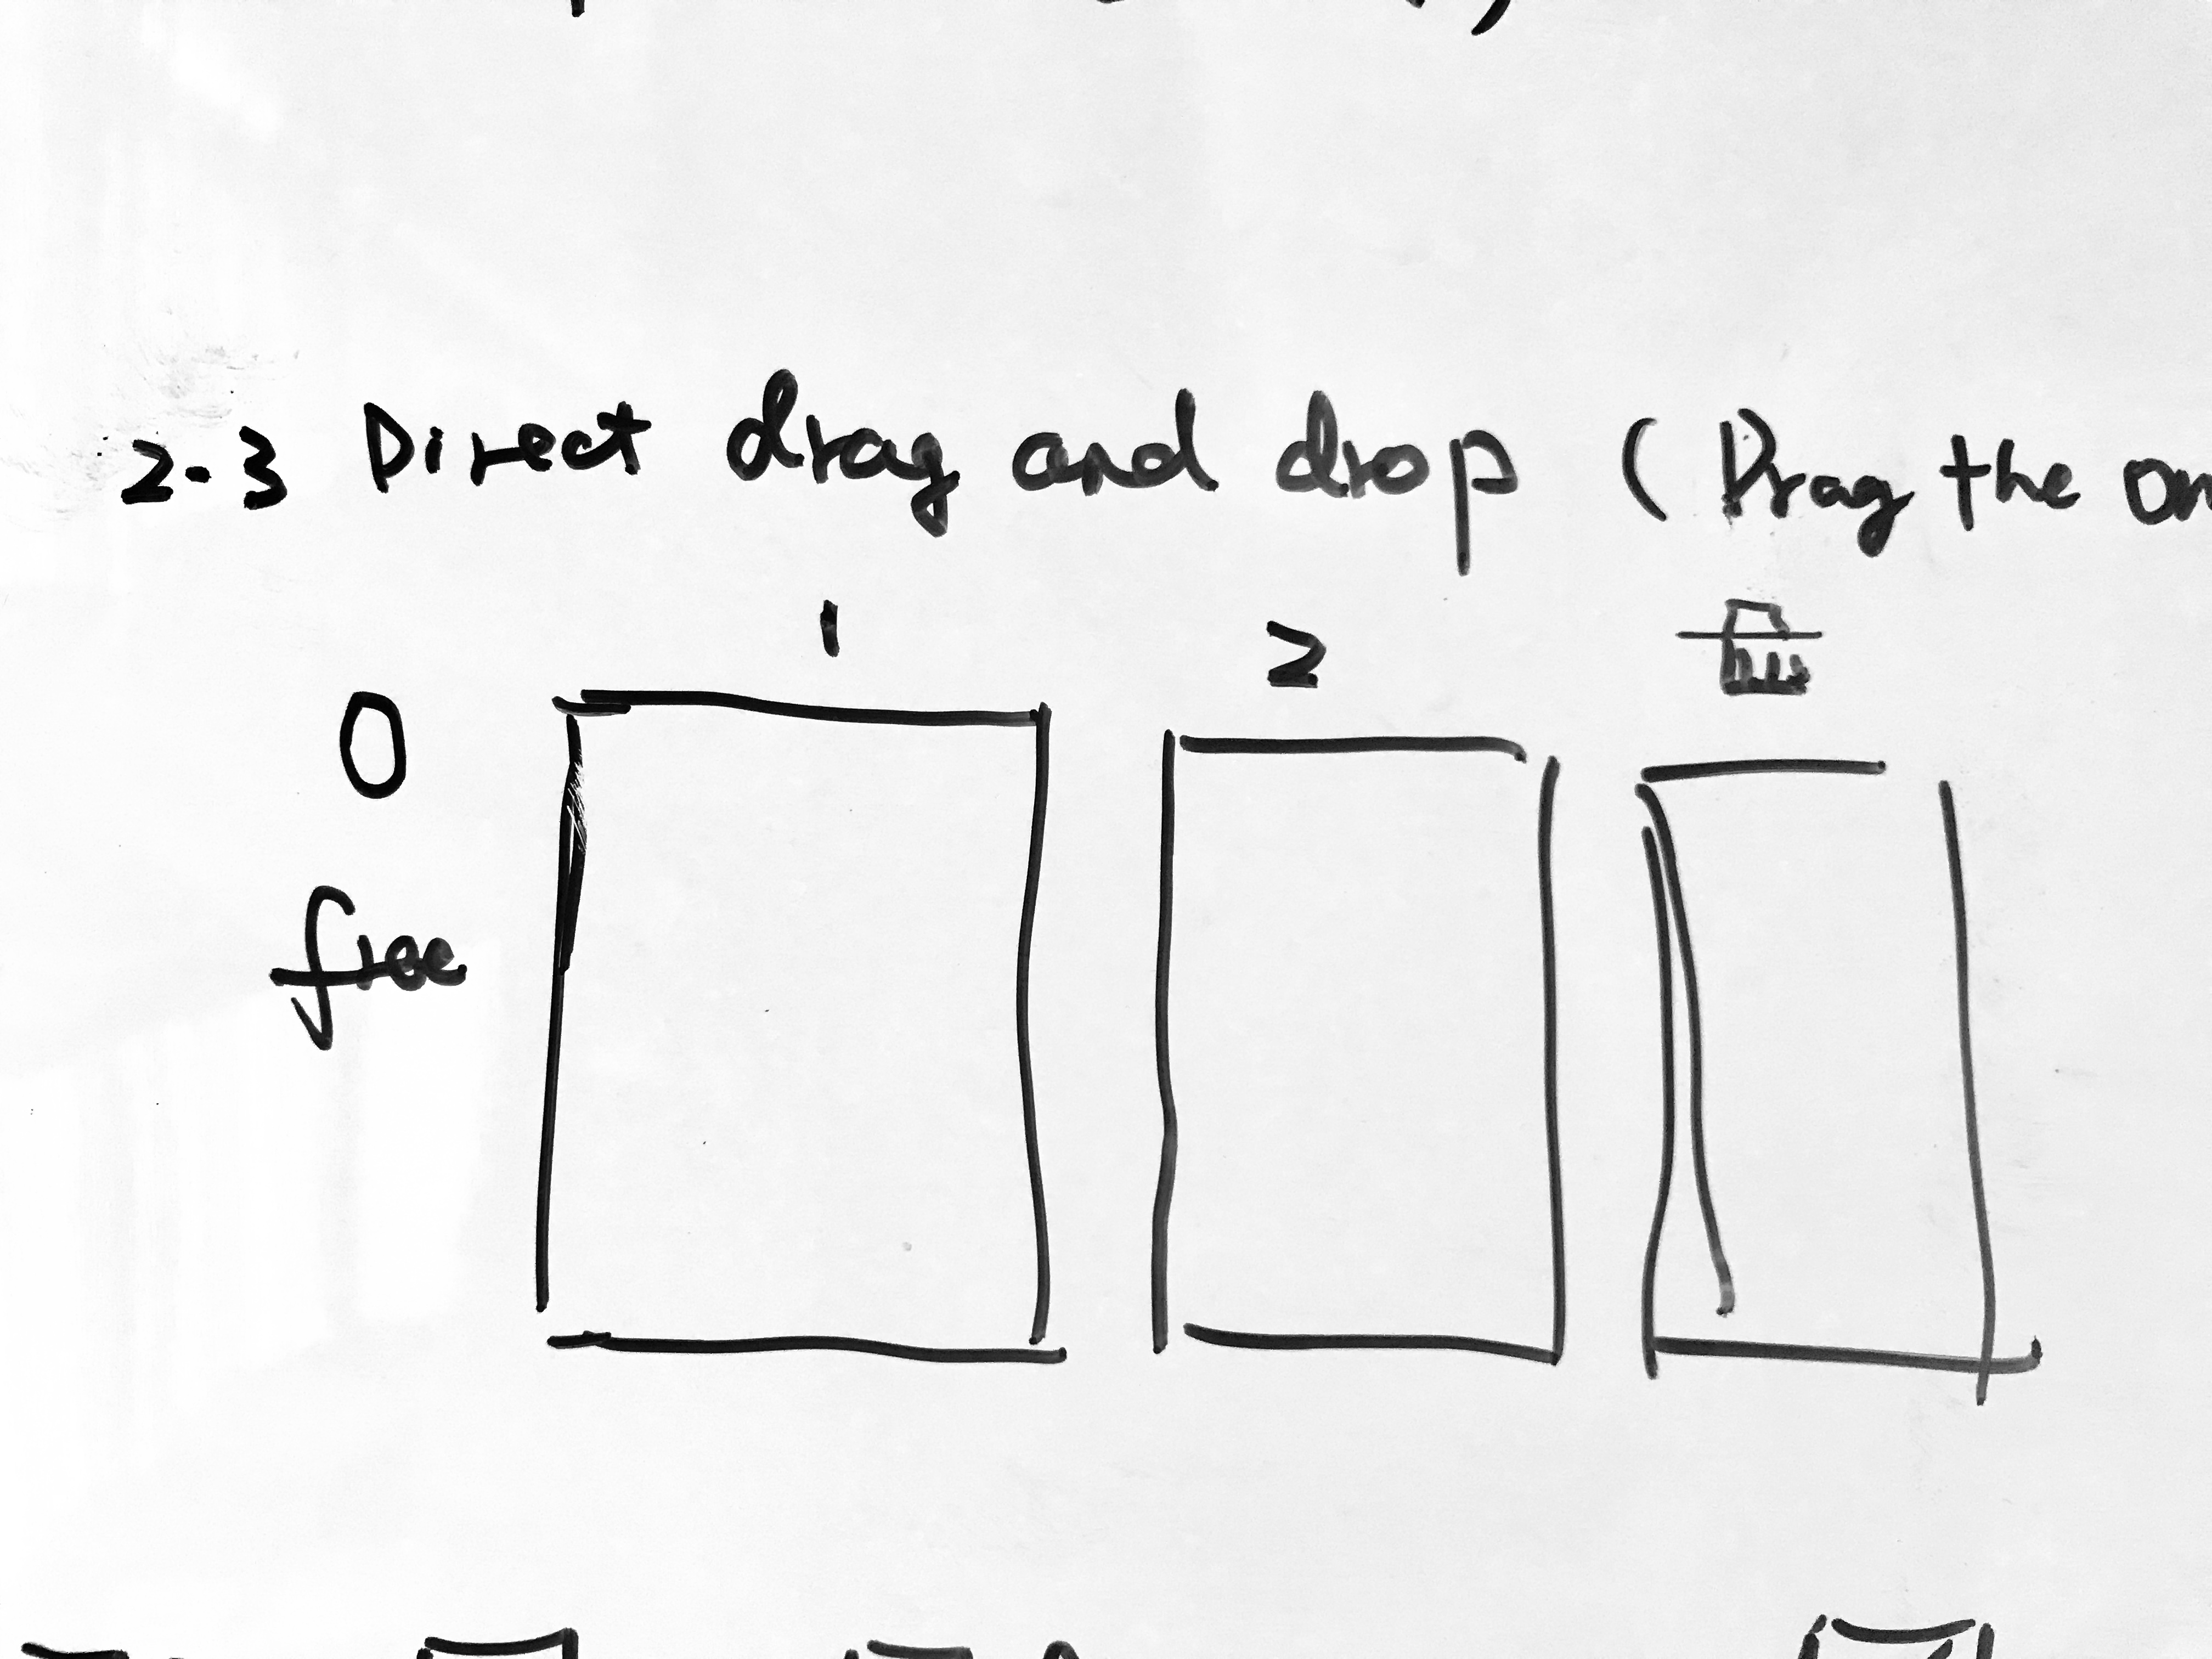 2-3 Direct drag and drop ( Drag the
1 2
0
free